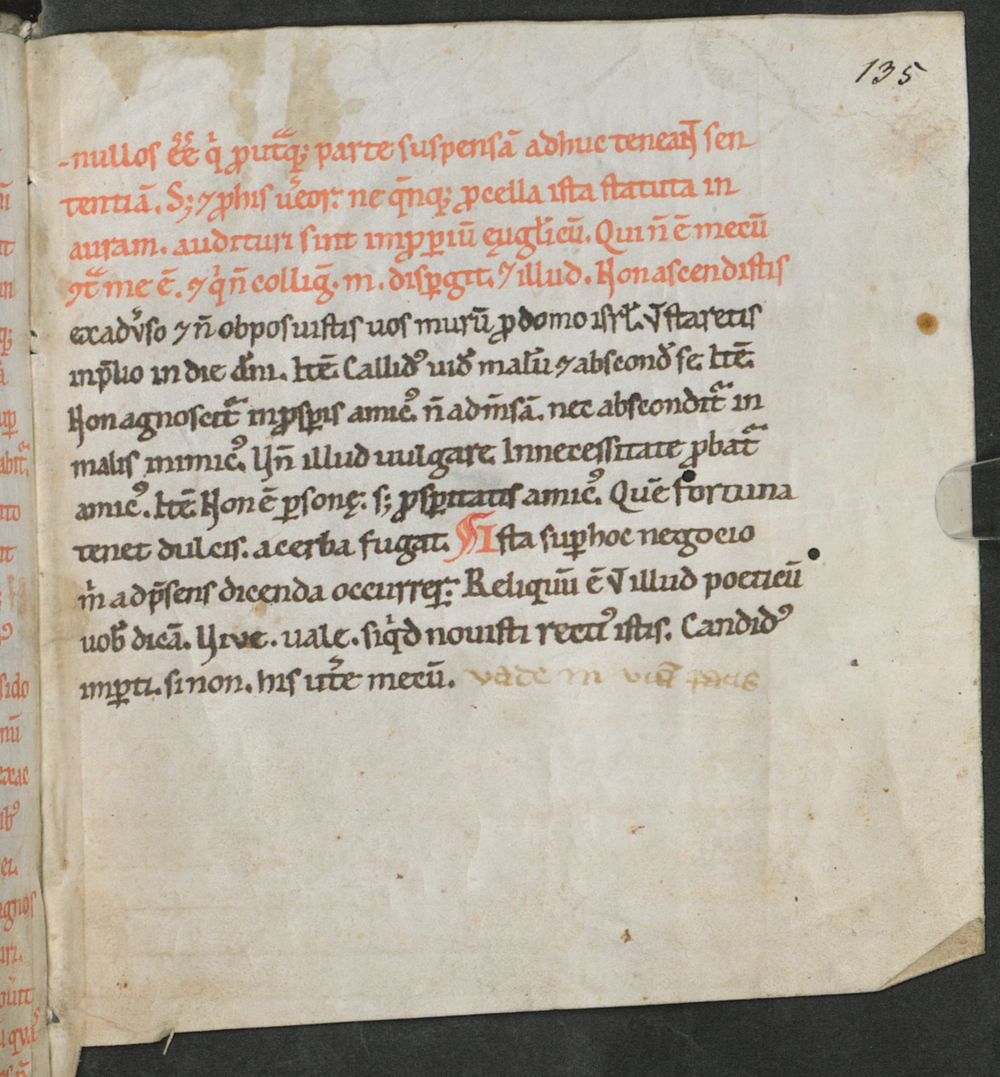 135
-nullos ee͞e qͥ ꝓutᷓqꝫ parte suspensā adhuc teneant sen
tentiā. Sꝫ ⁊ ꝓ his u̾eor: ne q̄nqꝫ ꝓcella ista statuta in
auram. audituri sint impꝓpiū euglͥcū. Qui n̄ ē mecū
ꝯtᷓ me ē. ⁊ qͥ n̄ collig̅. m. disꝑgit. ⁊ illud. Non ascendistis
ex adv̾so ⁊ n̄ obposuistis uos murū ꝓ domo isrl̄. Vt staretis
in p̄lio in die dn̄i. Itē. Callidꝰ uidꝰ malū ⁊ abscondꝰ se. Itē.
Non agnoscitᷓ in ꝓsꝑis amicꝰ. n̄ ad m̄sā. nec absconditᷓ in
malis inimicꝰ. Hn̄ illud uulgare. In necessitate ꝓbatᷓ
amicꝰ. Itē. Non ē ꝑsonę. sꝫ ꝓsꝑitatis amicꝰ. Quē fortuna
tenet dulcis. acerba fugat. Ista suꝑ hoc negocio
m̍ ad p̄sens dicenda occurrer̄: Reliquū ē vt illud poeticū
uob̄ dicā. Vive. uale. siqͥd nouisti rectiꝰ istis. Candidꝰ
imꝑti. si non. his ut̾e mecū. vade in